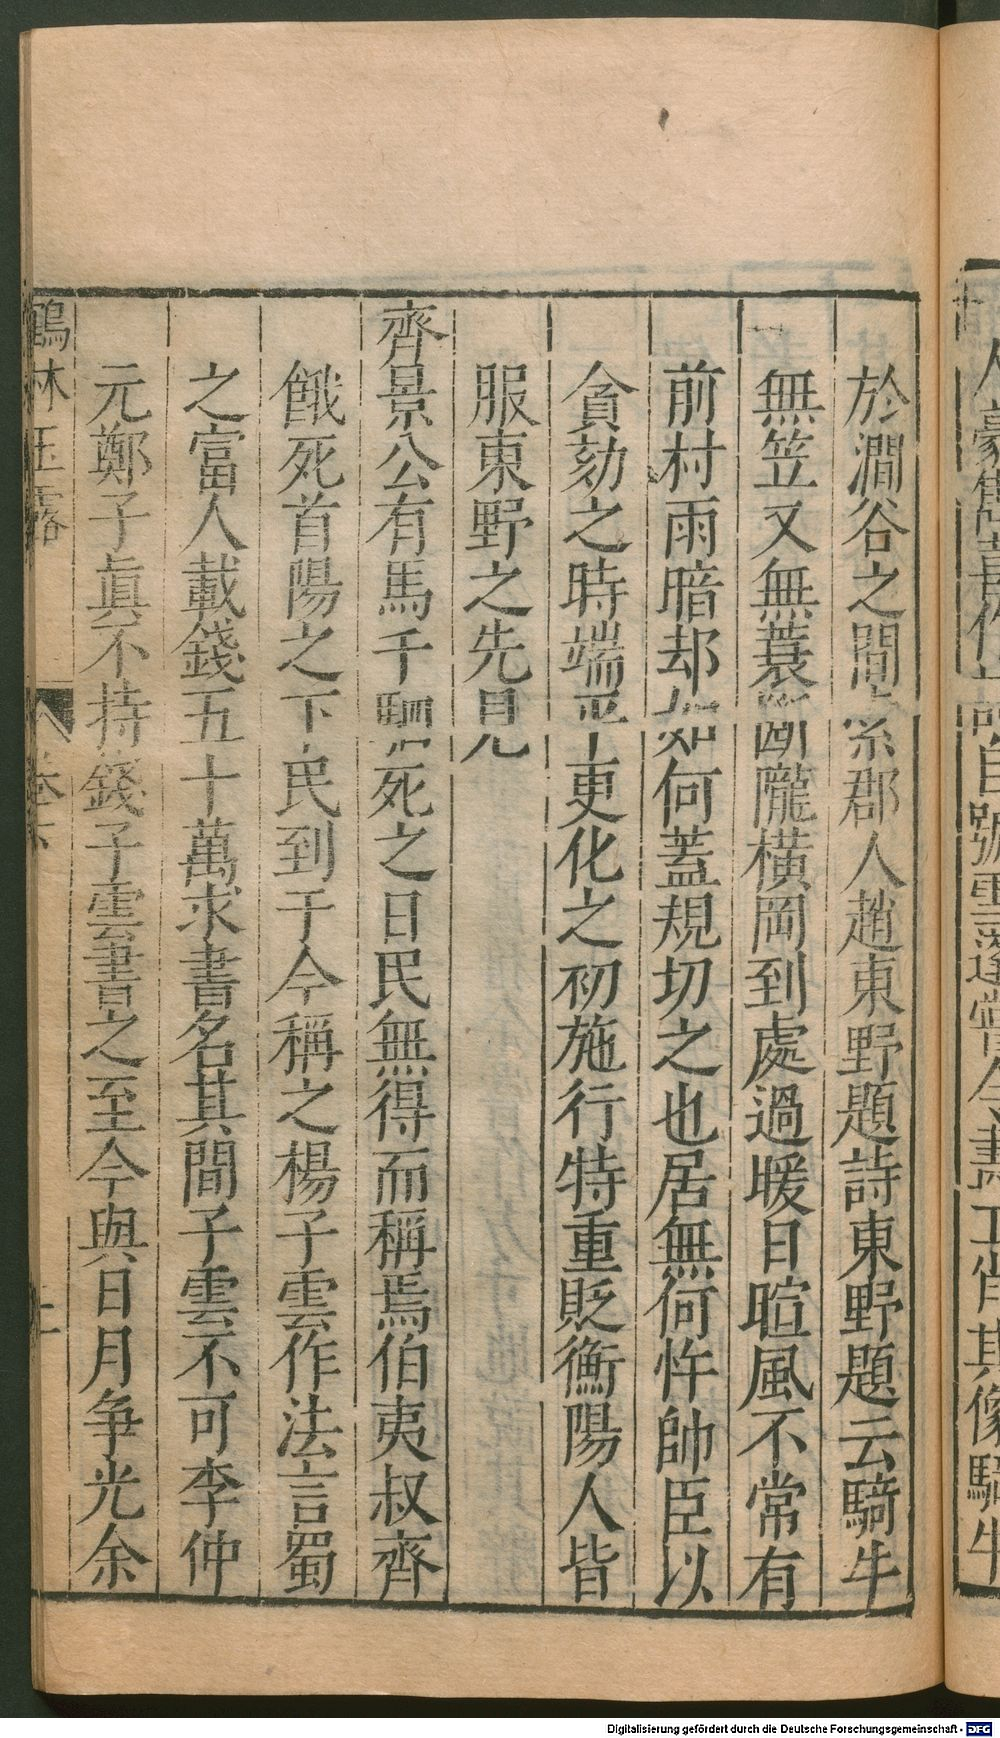 於澗谷之間索郡人趙東野題詩東野題云騎牛
無笠又無蓑斷隴橫岡到處過暖日暄風不常有
前村雨暗却如何蓋規切之也居無何忤帥臣以
貪劾之時端平更化之初施行特重貶衡陽人皆
服東野之先見
齊景公有馬千駟死之日民無得而稱焉伯夷叔齊
餓死首陽之下民到于今稱之楊子雲作法言蜀
之富人載錢五十萬求書名其間子雲不可李仲
元鄭子眞不持錢子雲書之至今與日月争光余
鶴林玉露
卷
Digitalisierung gefördert durch die Deutsche Forschungsgemeinschaft - DFG